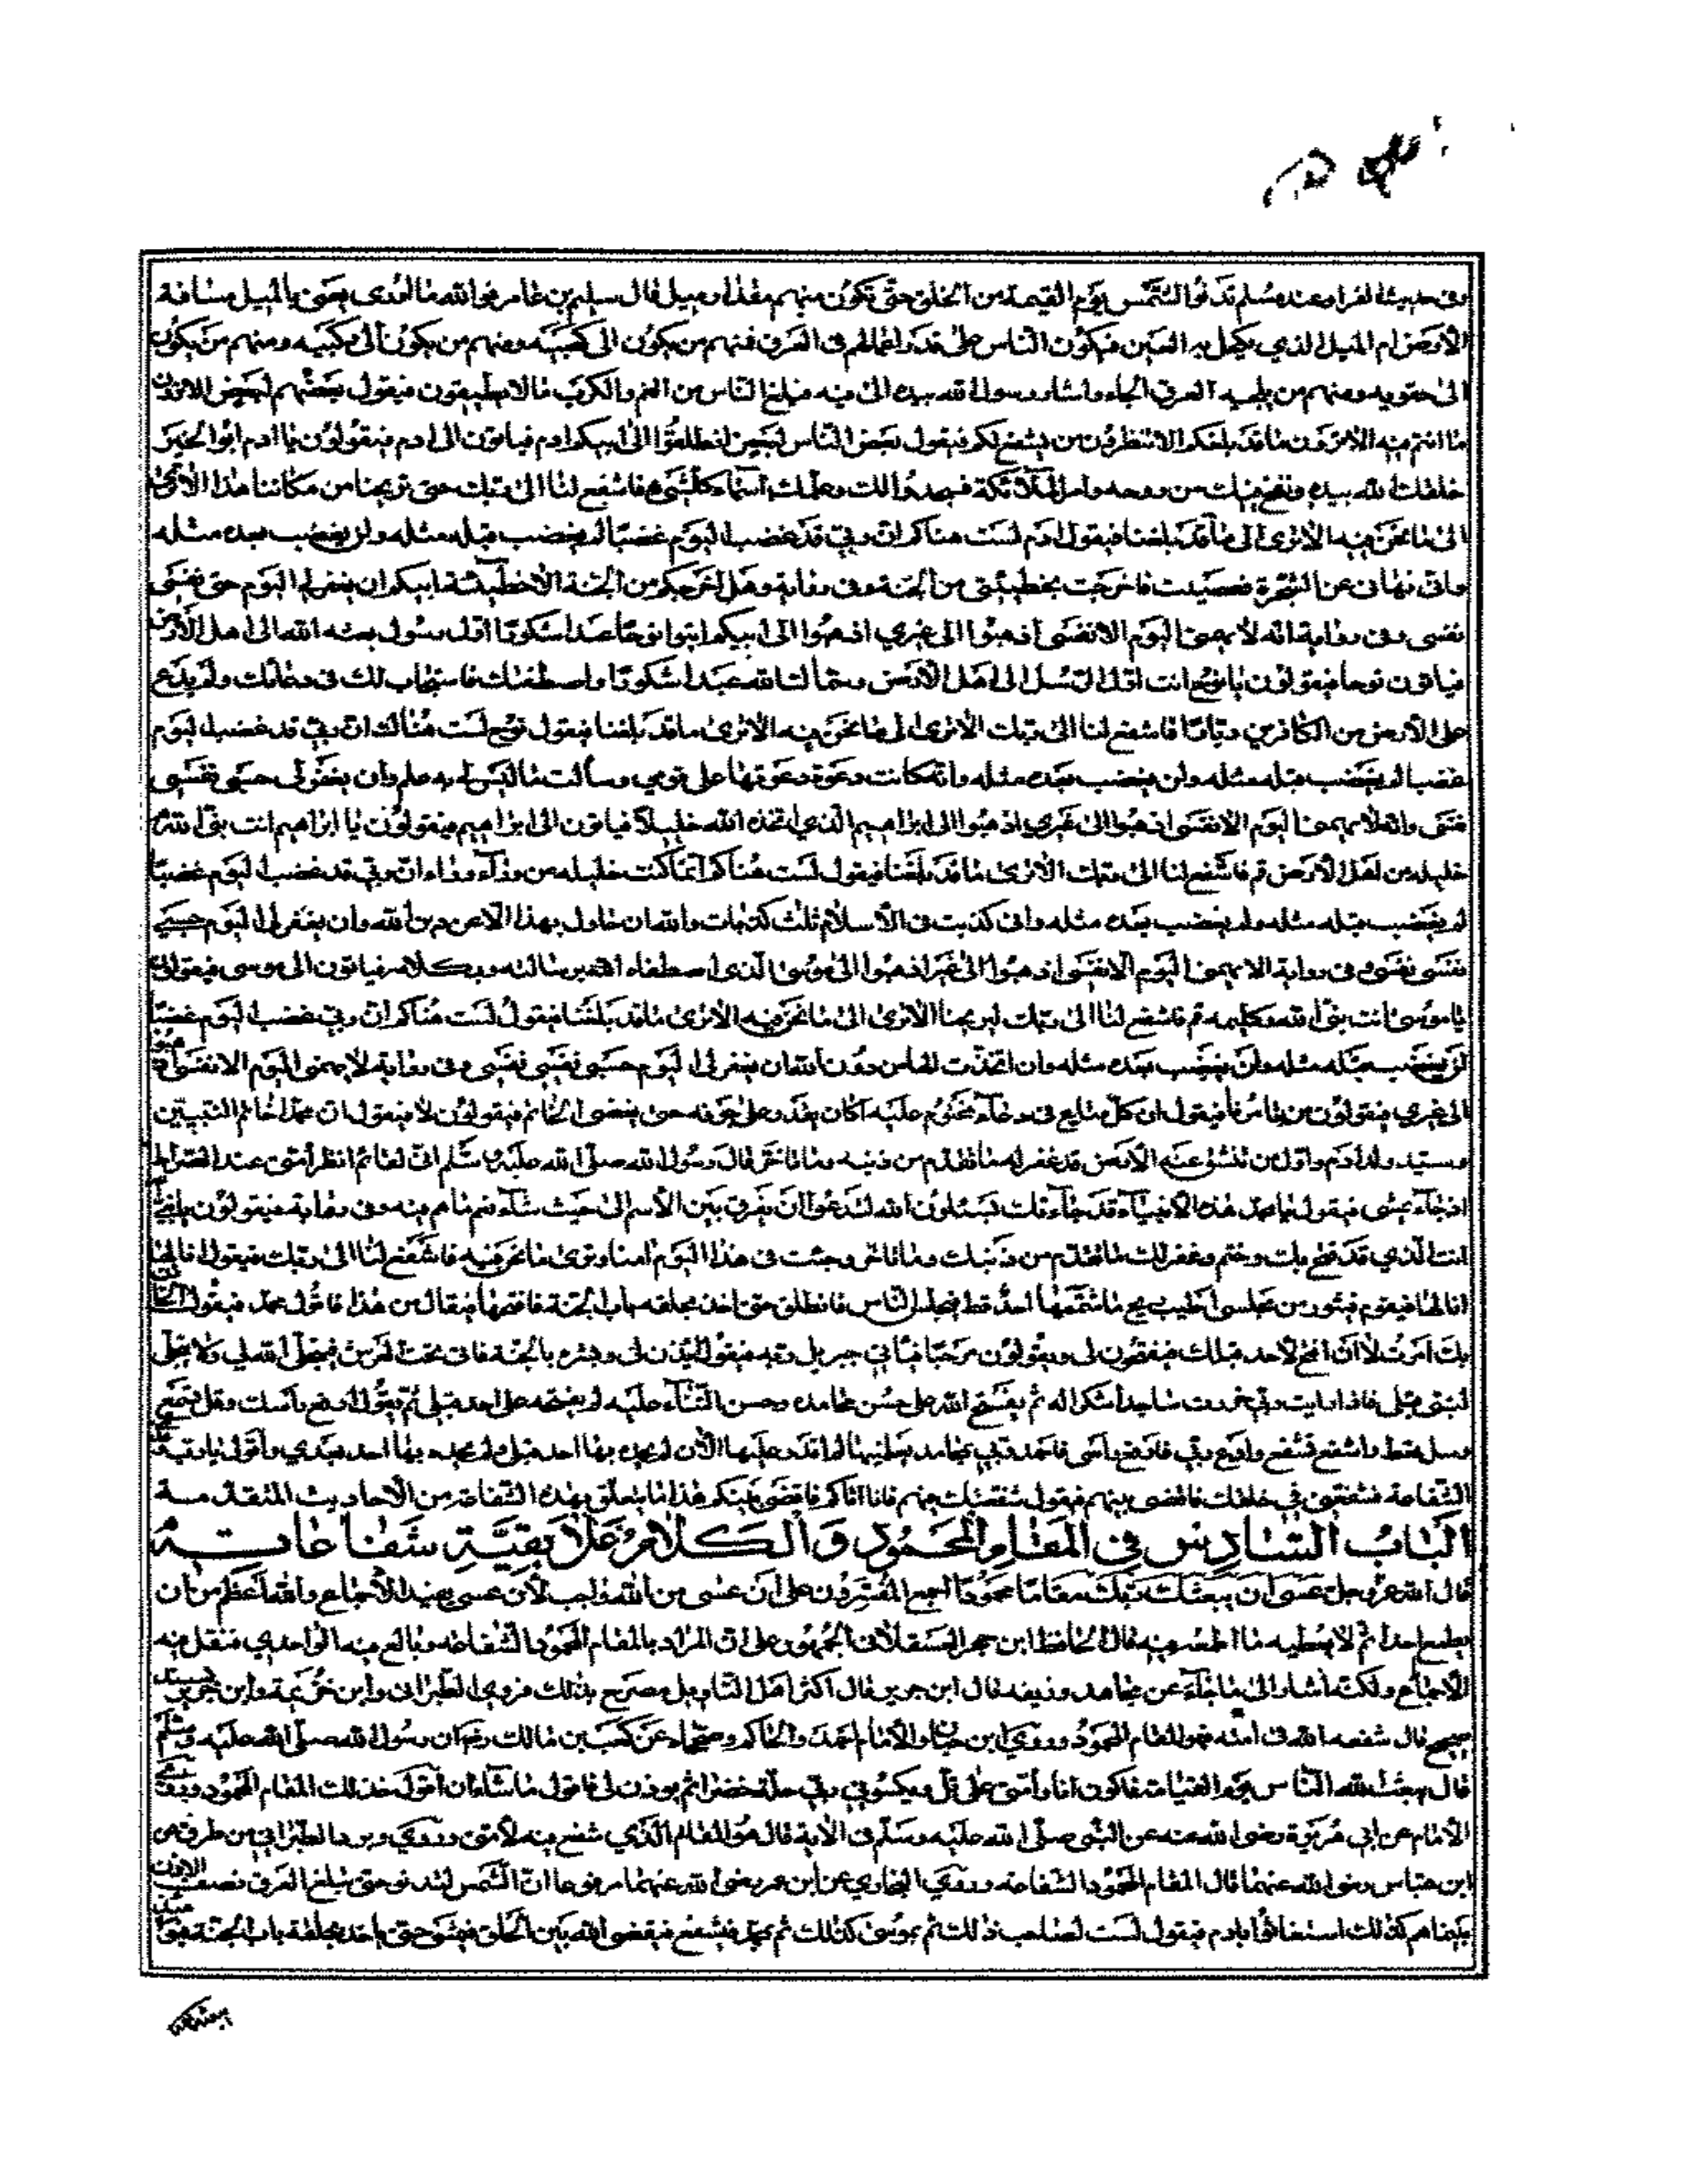 وفى حديث المقداد عند مسلم تدنوا الشمس يوم القيمة من الخلق حتى تكون منهم مقدار ميل قال سليم بن عامر فوالله ما ادرى يعنى بالميل مسافة
الارض ام الميل الذي يكحل به العين فيكون الناس على قدر اعمالهم فى العرق فمنهم من يكون الى كعبيه ومنهم من يكون الى ركبتيه ومنهم من يكون
الى حقويه ومنهم من يلجمه العرق الجاما واشار رسول الله بيده الى فيه فيبلغ الناس من الغم والكرب ما لا يطيقون فيقول بعضهم لبعض الا ترون
ما انتم فيه الا ترون ما قد بلغكم الا تنظرون من يشفع لكم فيقول بعض الناس لبعض انطلقوا الى ابيكم ادم فياتون الى ادم فيقولون يا ادم ابو
خلقك الله بيده ونفخ فيك من روحه وامر الملآئكة فسجدوا لك وعلمك اسماء كل شئ فاشفع لنا الى ربك حتى تريحنا من مكاننا هذا الا ترى
الى ما نحن فيه الا ترى الى ما قد بلغنا فيقول ادم لست هناكم ان ربي قد غضب اليوم غضبا لم يغضب قبله مثله ولن يغضب بعده مثله
وانى نهانى عن الشجرة فعصيت فاخرجت بخطيئتى من الجنة وفى رواية وهل اخرجكم من الجنة الا خطيئة ابيكم ان يغفر لى اليوم حتى نفسى
نفسى وفى رواية انه لا يهمنى اليوم الا نفسى اذهبوا الى غيري اذهبوا الى ابيكم ايتوا نوحا عبدا شكورا اول رسول بعثه الله الى اهل الارض
فياتون نوحا فيقولون يا نوح انت اول الرسل الى اهل الارض وسماك الله عبدا شكورا واصطفاك فاستجاب لك فى دعائك ولم يدع
على الارض من الكافرين ديارا فاشفع لنا الى ربك الا ترى الى ما نحن فيه الا ترى ما قد بلغنا فيقول نوح لست هناك ان ربي قد غضب اليوم
غضبا لم يغضب قبله مثله ولن يغضب بعده مثله وانه كانت دعوة دعوتها على قومي وسالت ما ليس لي به علم وان يغفر لى حسبى نفسى
نفسى وانه لا يهمنى اليوم الا نفسى اذهبوا الى غيري اذهبوا الى ابراهيم الذي اتخذه الله خليلا فياتون الى ابراهيم فيقولون يا ابراهيم انت نبى الله
خليله من اهل الارض قم فاشفع لنا الى ربك الا ترى ما قد بلغنا فيقول لست هناكم انما كنت خليله من ورآء ورآء ان ربي قد غضب اليوم غضبا
لم يغضب قبله مثله ولم يغضب بعده مثله وانى كذبت فى الاسلام ثلث كذبات والله ان حاول بهذا الا عن دين الله وان يغفر لى اليوم حسبي
نفسى نفسى وفى رواية الا يهمنى اليوم الا نفسى اذهبوا الى غيري اذهبوا الى موسى الذى اصطفاه الله برسالته وبكلامه فياتون الى موسى فيقولون
يا موسى انت نبى الله وكليمه قم فاشفع لنا الى ربك ليريحنا الا ترى الى ما نحن فيه الا ترى ما قد بلغنا فيقول لست هناكم ان ربي غضب اليوم غضبا
لم يغضب قبله مثله ولن يغضب بعده مثله وان اتخذت الها من دون الله ان يغفر لى اليوم حسبى نفسى نفسى وفى رواية لا يهمنى اليوم الا نفسى اذهبوا
الى غيري فيقولون من تامرنا فيقول ان كل متاع فى وعآء مختوم عليه اكان يقدر على جوفه حتى يفض الخاتم فيقولون لا فيقول ان محمدا خاتم النبيين
وسيد ولد ادم واول من تنشق عنه الارض قد غفر له ما تقدم من ذنبه وما تاخر قال رسول الله صلى الله عليه وسلم انى لقائم انظر امتى عند الصراط
اذ جآء عيسى فيقول يا محمد هذه الانبيآء قد جآءتك يسئلون الله لتدعوا ان يفرق بين الامم الى حيث شآء لغم ما هم فيه وفى رواية فيقولون يا نبى
انت الذي قد فتح بك وختم وغفر لك ما تقدم من ذنبك وما تاخر وجئت فى هذا اليوم امنا وترى ما نحن فيه فاشفع لنا الى ربك فيقول انا لها
انا لها فيقوم فيثور من مجلسى اطيب ريح ما شمها احد قط فيجلس الناس فانطلق حتى اخذ بحلقة باب الجنة فاقعقها فيقال من هذا فاقول محمد فيقول الخازن
بك امرت لا ان افتح لاحد قبلك فيفتحون لى ويقولون مرحبا فياتي جبريل ربه فيقول ائذن له وبشره بالجنة فاتى تحت العرش فيتجلى الله لي ولا يتجلى
لنبى قبلى فاذا رايت ربي خررت ساجدا شكرا له ثم يفتح الله على حسن محامده وحسن الثنآء عليه لم يفتحه على احد قبلى ثم يقول ارفع رأسك وقل تسمع
وسل تعط واشفع تشفع وادع ربي فارفع راسى فاحمد ربي بمحامد يعلمنيها لا اقدر عليها الان لم يحمده بها احد قبلى ولم يحمده بها احد بعدي واقول يا رب
الشفاعة فشفعنى فى خلقك فاقضى بينهم فيقول شفعتك فيهم فانا اتاكم فاقضى بينكم هذا ما يتعلق بهذه الشفاعة من الاحاديث المتقدمة
الباب السادس فى المقام المحمود والكلام على بقية شفاعاته
قال الله عز وجل عسى ان يبعثك ربك مقاما محمودا اجمع المفسرون على ان عسى من الله واجب لان عسى يفيد الاطماع والله اعظم من ان
يطمع احدا ثم لا يعطيه ما اطمعه فيه قال الحافظ ابن حجر العسقلانى الجمهور على ان المراد بالمقام المحمود الشفاعة وبالغ فيه الواحدي فنقل فيه
الاجماع ولكنه اشار الى ما جآء عن مجاهد وزيفه قال ابن جرير قال اكثر اهل التاويل مصرح بذلك فروي الطبرانى وابن خزيمة وابن جرير بسند
صحيح قال شفعه الله فى امته فهو المقام المحمود وروي ابن حبان والامام احمد والحاكم وصححاه عن كعب بن مالك رض ان رسول الله صلى الله عليه وسلم
قال يبعث الله الناس يوم القيامة فاكون انا وامتى على تل ويكسونى ربي حلة خضرا ثم يوذن لى فاقول ما شاء ان اقول فذلك المقام المحمود وروي
الامام عن ابي هريرة رضي الله عنه عن النبى صلى الله عليه وسلم فى الاية قال هو المقام الذي شفع فيه لامتى وروي الطبرانى من طرق عن
ابن عباس رضي الله عنهما قال المقام المحمود الشفاعة وروي البخاري عن ابن عمر رضي الله عنهما مرفوعا ان الشمس لتدنو حتى يبلغ العرق نصف الاذن
بينما هم كذلك استغاثوا بادم فيقول لست لصاحب ذلك ثم بموسى كذلك ثم بمحمد فيشفع فيقضى الله بين الخلق فيمشى حتى ياخذ بحلقة باب الجنة